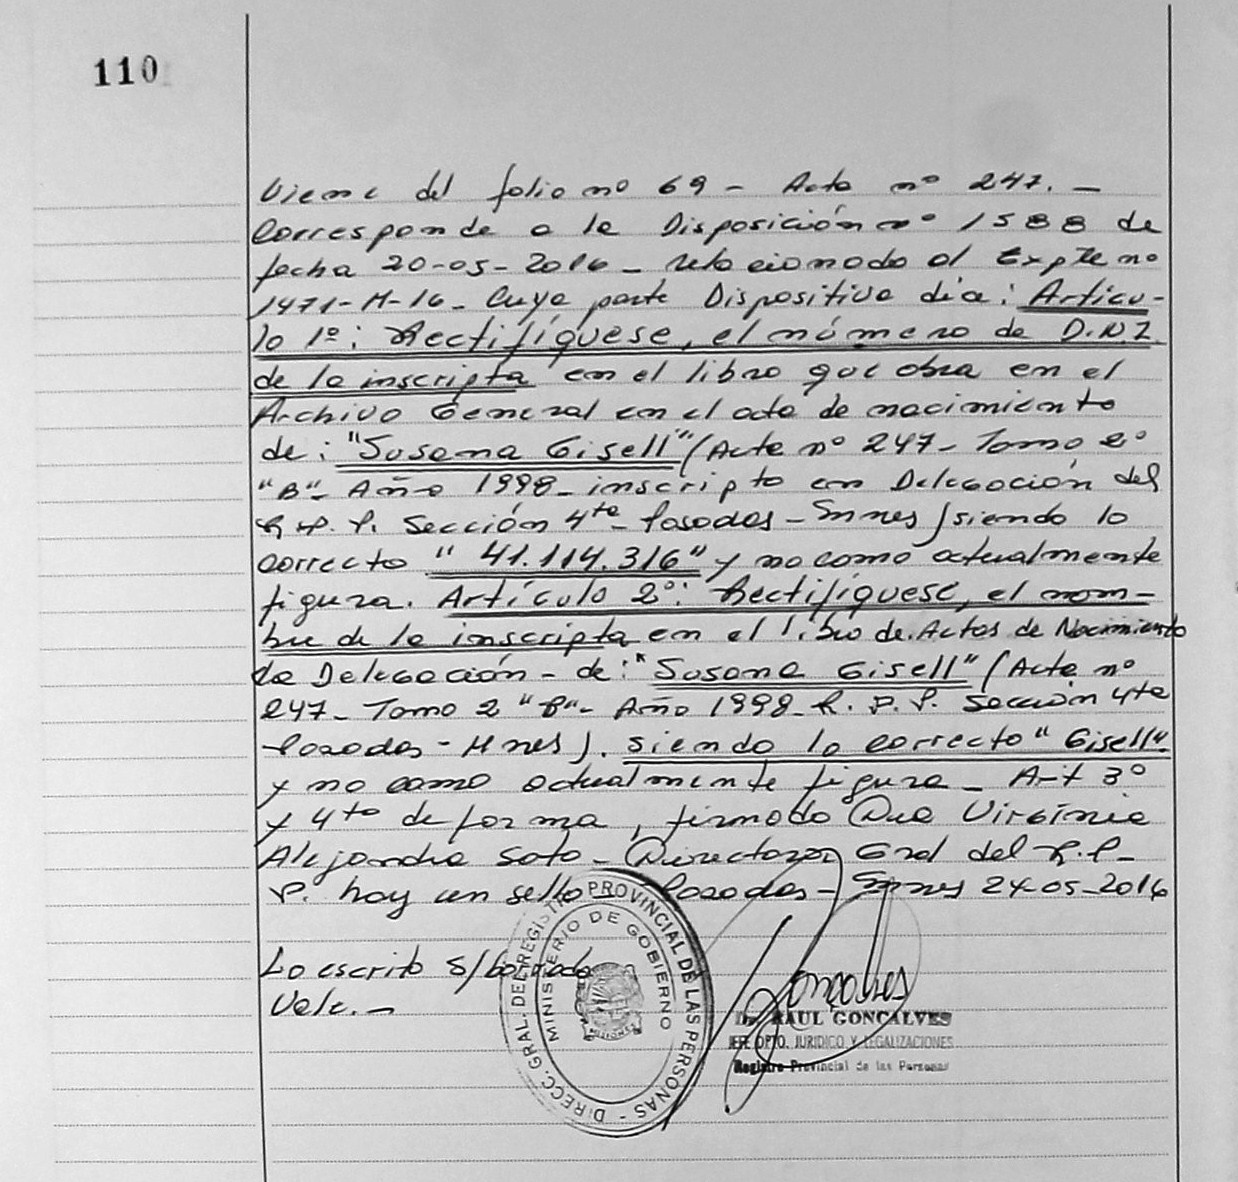 110
Viene del folio nº 69 - Acta nº 247. -
Corresponde a la Disposición nº 1588 de
fecha 20-05-2016 - relacionado al Expte nº
1471-H-16. Cuya parte Dispositiva dia: Artícu-
lo 1º: Rectifíquese, el número de D.N.I.
de la inscripta en el libro que obra en el
Archivo General en el acta de nacimiento
de: "Susana Gisell" (Acta nº 247 - Tomo 2º
"B" - Año 1998 - inscripto en Delegación del
R.P.P. Sección 4ta - Posadas - Mnes) siendo lo
correcto " 41.114.316" y no como actualmente
figura. Artículo 2º: Rectifíquese, el nom-
bre de la inscripta en el libro de Actas de Nacimiento
de Delegación - de: "Susana Gisell" (Acta nº
247 - Tomo 2 "B" - Año 1998 - R.P.P. Sección 4ta
Posadas - Mnes). siendo lo correcto "Gisell"
y no como actualmente figura - Art 3º
y 4to de forma, firmado Dra Virginia
Alejandra Soto - Directora Gral del R.P.-
P. hay un sello Posadas - Mnes 24-05-2016
Lo escrito S/borrado
Vale. -
DIRECC. GRAL. DEL REGISTRO PROVINCIAL DE LAS PERSONAS -
MINISTERIO DE GOBIERNO
MISIONES
Goncalves
Dr. RAUL GONCALVES
JEFE DPTO. JURIDICO Y LEGALIZACIONES
Registro Provincial de las Personas